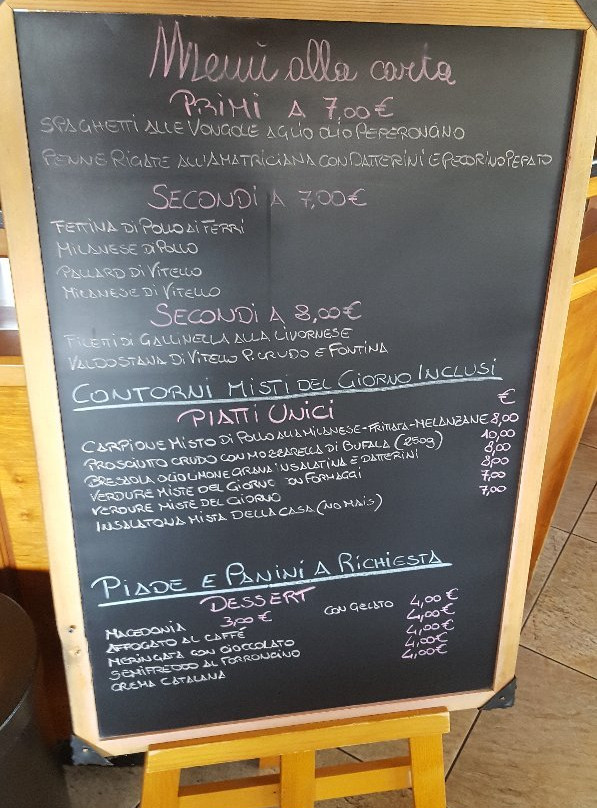 Menù alla carta
PRIMI A 7,00 €
SPAGHETTI ALLE VONGOLE AGLIO OLIO PEPERONCINO
PENNE RIGATE ALL'AMATRICIANA CON DATTERINI E PECORINO PEPATO
SECONDI A 7,00 €
FETTINA DI POLLO AI FERRI
MILANESE DI POLLO
PALLARD DI VITELLO
MILANESE DI VITELLO
SECONDI A 8,00 €
FILETTI DI GALLINELLA ALLA LIVORNESE
VALDOSTANA DI VITELLO P. CRUDO E FONTINA
CONTORNI MISTI DEL GIORNO INCLUSI
PIATTI UNICI €
CARPIONE MISTO DI POLLO ALLA MILANESE-FRITTATA-MELANZANE 8,00
PROSCIUTTO CRUDO CON MOZZARELLA DI BUFALA (250g) 10,00
BRESAOLA OLIO LIMONE GRANA INSALATINA E DATTERINI 8,00
VERDURE MISTE DEL GIORNO CON FORMAGGI 8,00
VERDURE MISTE DEL GIORNO 7,00
INSALATONA MISTA DELLA CASA (NO MAIS) 7,00
PIADE E PANINI A RICHIESTA
DESSERT
MACEDONIA 3,00 € CON GELATO 4,00 €
AFFOGATO AL CAFFÉ 4,00 €
MERINGATA CON CIOCCOLATO 4,00 €
SEMIFREDDO AL TORRONCINO 4,00 €
CREMA CATALANA 4,00 €